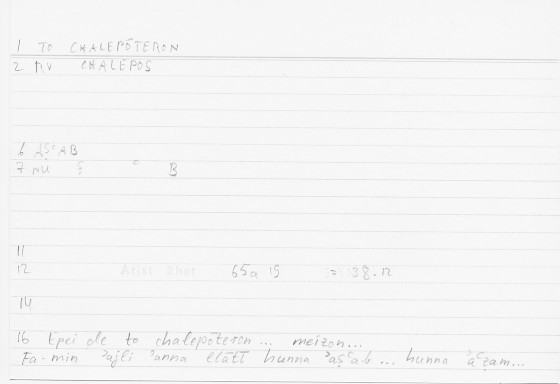 1 TO CHALEPŌTERON
2 AV CHALEPOS
6 ʾAṢʿAB
7 MU Ṣ ʿ B
11
12 Arist Rhet 65a 15 = 38.12
14
16 Epei de to chalepōteron ... meizon...
Fa-min ʾajli ʾanna llātī hunna ʾaṣʿab ... hunna ʾaʿẓam...